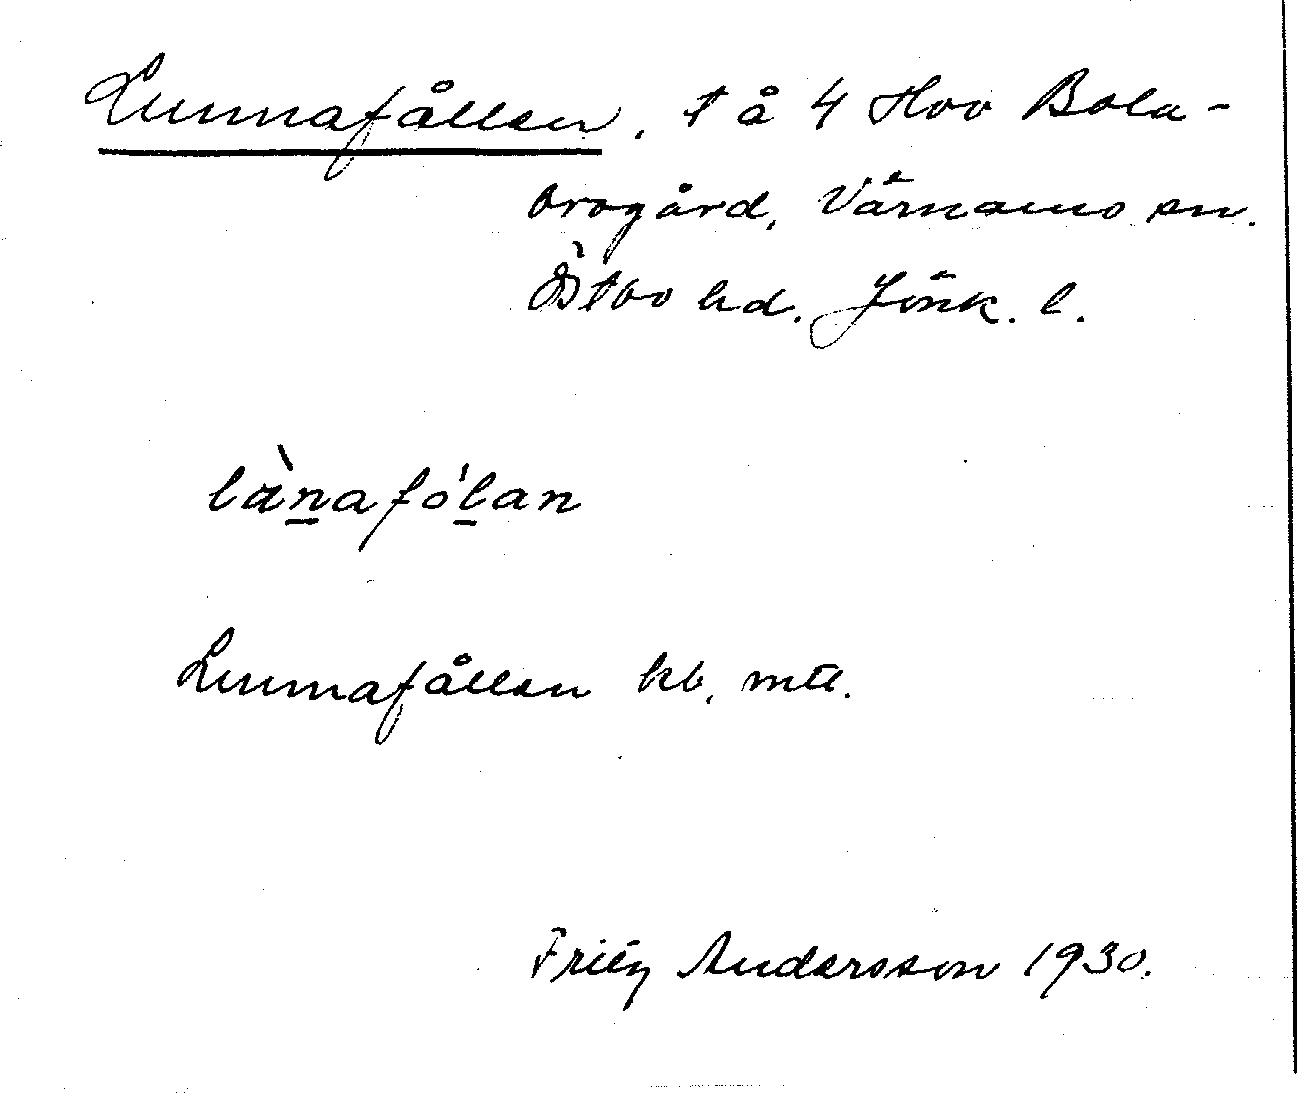 Lunnafållen, t å 4 Hov Bola-
orsgård, Värnamo sn.
Östbo hd. Jönk. l.
lànafólan
Lunnafållen kb, mtl.
Fritz Andersson 1930.